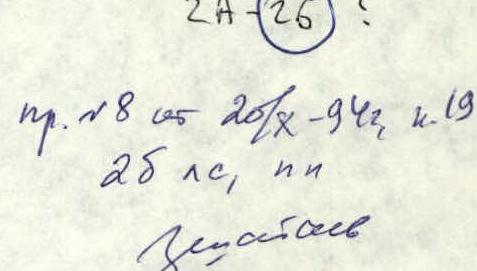 2А - 2б ?
пр. №8 от 20/X-94г, п.19
2б лс, пп